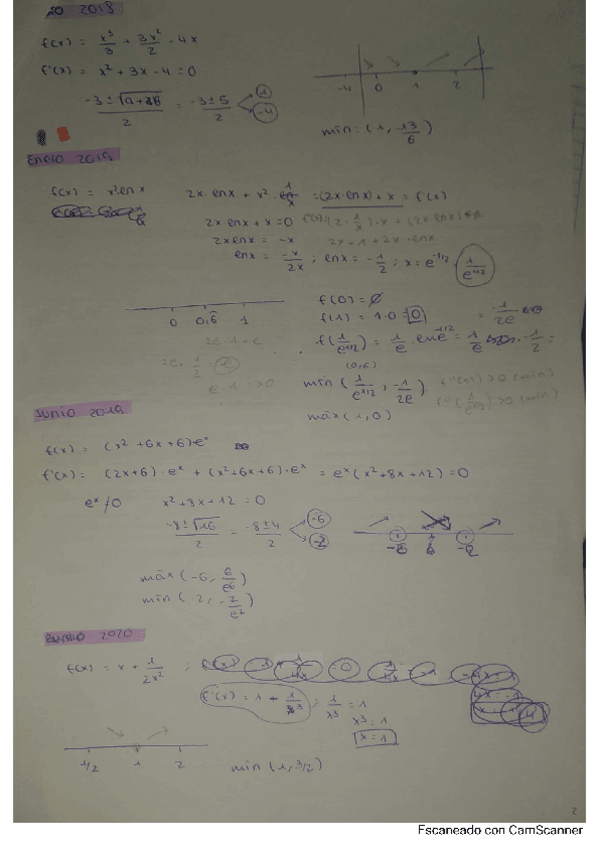 2018
f(x) = x³/3 + 3x²/2 - 4x
f'(x) = x² + 3x - 4 = 0
-4 0 1 2
= -3±5/2 1
-4
min: (1, -13/6)
Enero 2019
f(x) = x² ln x 2x · ln x + x² · = (2x · ln x) + x = f'(x)
2x · ln x + x = 0
2x ln x = -x 2x · 1 + 2x · ln x
ln x = -x/2x ; ln x = -1/2 ; x = e^-1/2 · 1/e^1/2
0 0,6 1
f(0) = ∅
f(1) = 1 · 0 = 0 = -1/2e
f(1/e^1/2) = 1/e ln e^-1/2 = 1/e · -1/2 =
(0,6)
min (1/e^1/2, -1/2e)
máx (1, 0)
Junio 2019
f(x) = (x² + 6x + 6) · e^x
f'(x) = (2x+6) · e^x + (x² + 6x + 6) · e^x = e^x (x² + 8x + 12) = 0
e^x ≠ 0 x² + 8x + 12 = 0
-8±√16/2 = -8±4/2 -6
-2
máx (-6, 6/e⁶)
min (2, -2/e²)
Enero 2020
f(x) = x + 1/2x² ;
f'(x) = 1 + 1/x³ ; 1/x³ = 1
x³ = 1
x = 1
4x = -1
1/2 1 2
min (1, 3/2)
2
Escaneado con CamScanner